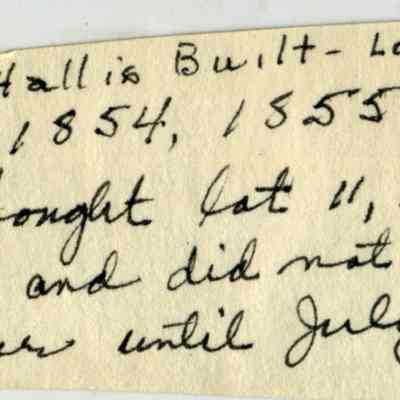 Hall is Built - Lo
1854, 1855
bought lot 11,
and did not
until July